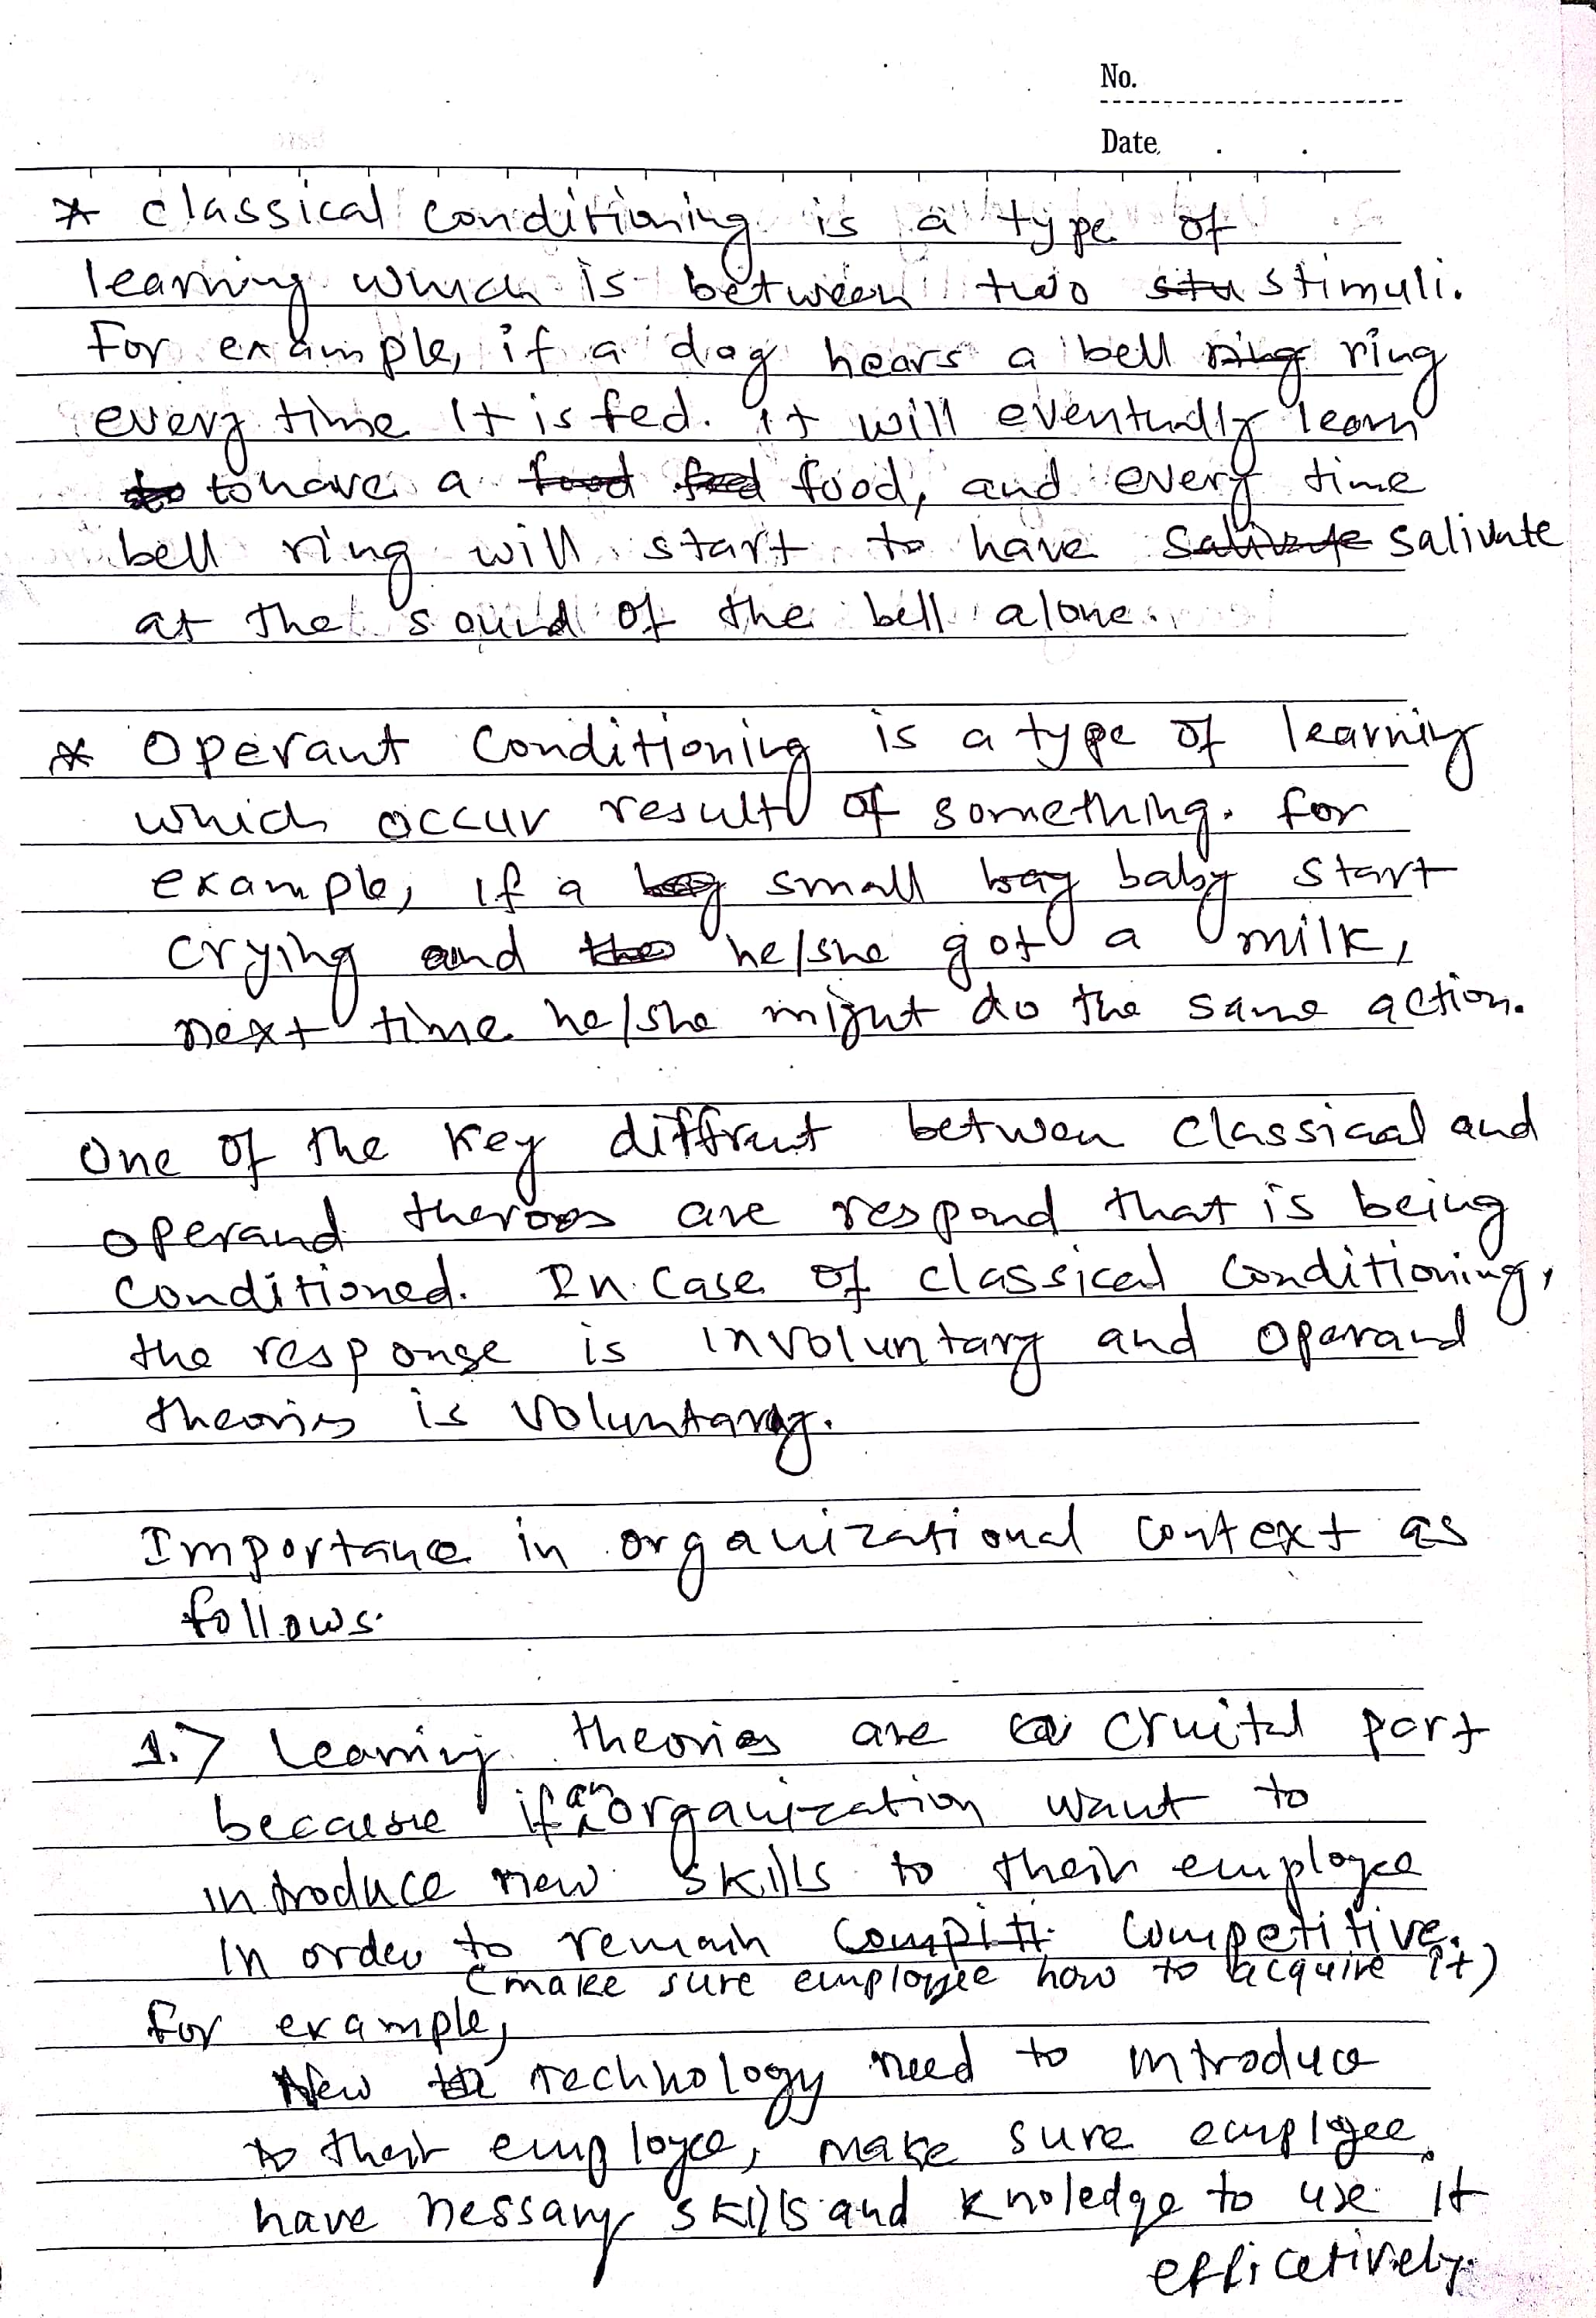 No.
Date.
* classical conditioning is a type of
learning which is between two stu stimuli.
For example, if a dog hears a bell ring ring
every time it is fed. it will eventually learn
to to have a food feed food, and every time
bell ring will start to have salivate salivate
at the sound of the bell alone.
* Operant conditioning is a type of learning
which occur result of something. for
example, if a boy small bay baby start
crying and the he/she got a milk,
next time he/she might do the same action.
One of the key diffrent betwen classical and
operand are respond that is being
conditioned. In case of classical conditioning,
the response is involuntary and operand
theories is voluntary.
Importance in organizational context as
follows.
1.> Learning theories are a cruital part
because if an organization want to
introduce new skills to their employee
in order to remain compiti competitive.
(make sure employee how to acquire it)
for example,
New te technology need to introduce
to their employee, make sure employee
have nessary skills and knoledge to use it
efficetively.